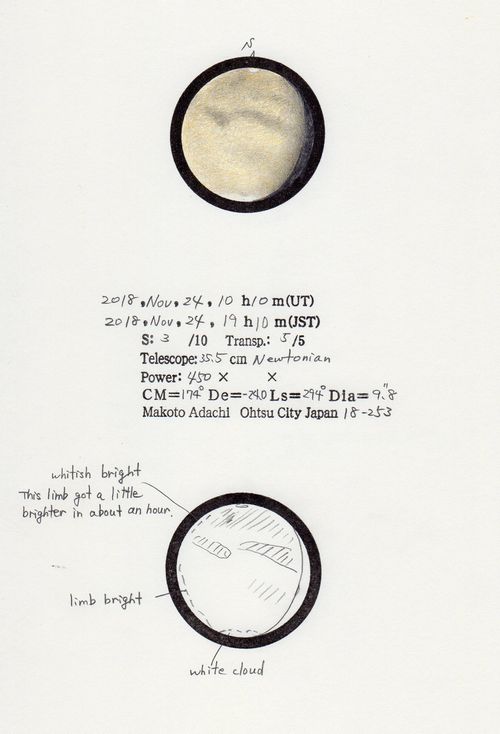 N
2018, Nov, 24, 10 h 10 m(UT)
2018, Nov, 24, 19 h 10 m(JST)
S: 3 /10 Transp.: 5/5
Telescope: 35.5 cm Newtonian
Power: 450 × ×
CM=174° De=-24.0 Ls=294° Dia=9."8
Makoto Adachi Ohtsu City Japan 18-253
whitish bright
This limb got a little
brighter in about an hour.
limb bright
white cloud